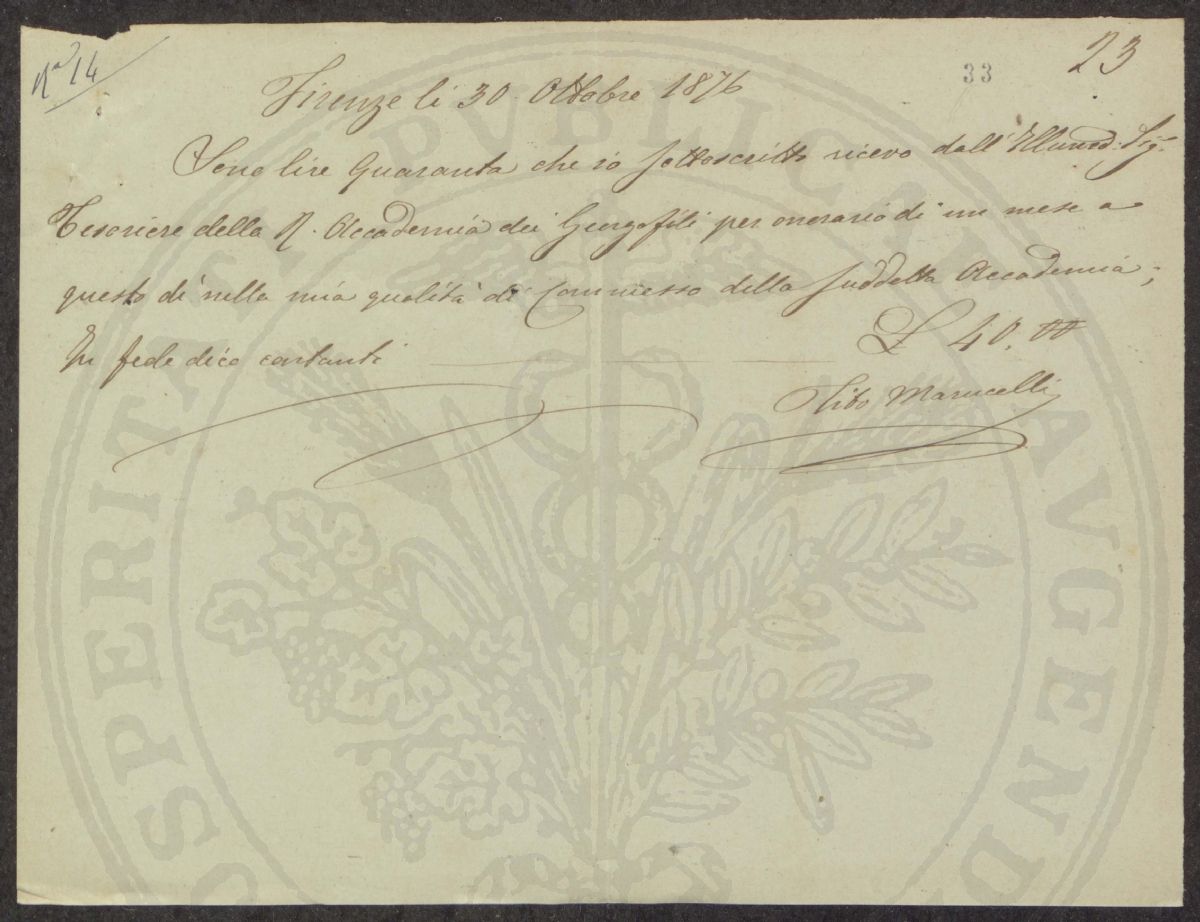 N° 14
33
23
Firenze li 30 Ottobre 1876
Sono lire Quaranta che io sottoscritto ricevo dall'Illumo: Sigr.
Tesoriere della R. Accademia dei Georgofili per onorario di un mese a
questo dì nella mia qualità di Commesso della suddetta Accademia;
In fede dico contanti £ 40,00
Tito Marucelli
PROSPERITATI PVBLICAE AVGENDAE